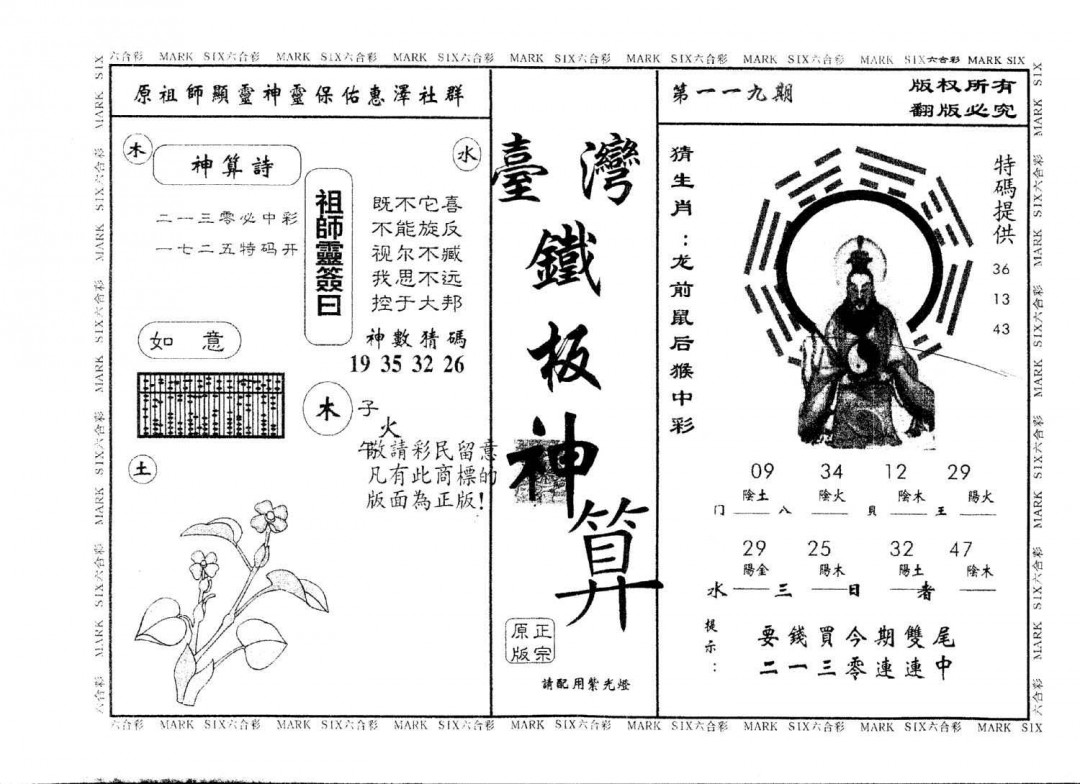 六合彩 MARK SIX六合彩 MARK SIX六合彩 MARK SIX六合彩 MARK SIX六合彩 MARK SIX六合彩 MARK SIX六合彩 MARK SIX六合彩 MARK SIX
原祖師顯靈神靈保佑惠澤社群
木
水
神算詩
二一三零必中彩
一七二五特码开
祖師靈簽曰
既不它喜
不能旋反
视尔不臧
我思不远
控于大邦
神數猜碼
19 35 32 26
如意
木
子
火
午
敬請彩民留意
凡有此商標的
版面為正版!
土
臺灣
鐵
板
神
算
正宗
原版
請配用紫光燈
第一一九期
版权所有
翻版必究
猜生肖:龙前鼠后猴中彩
特碼提供
36
13
43
09 34 12 29
陰土 陰火 陰木 陽火
门 八 貝 王
29 25 32 47
陽金 陽木 陽土 陰木
水 三 日 者
提示:
要錢買今期雙尾
二一三零連連中
六合彩 MARK SIX六合彩 MARK SIX六合彩 MARK SIX六合彩 MARK SIX六合彩 MARK SIX六合彩 MARK SIX六合彩 MARK SIX六合彩 MARK SIX